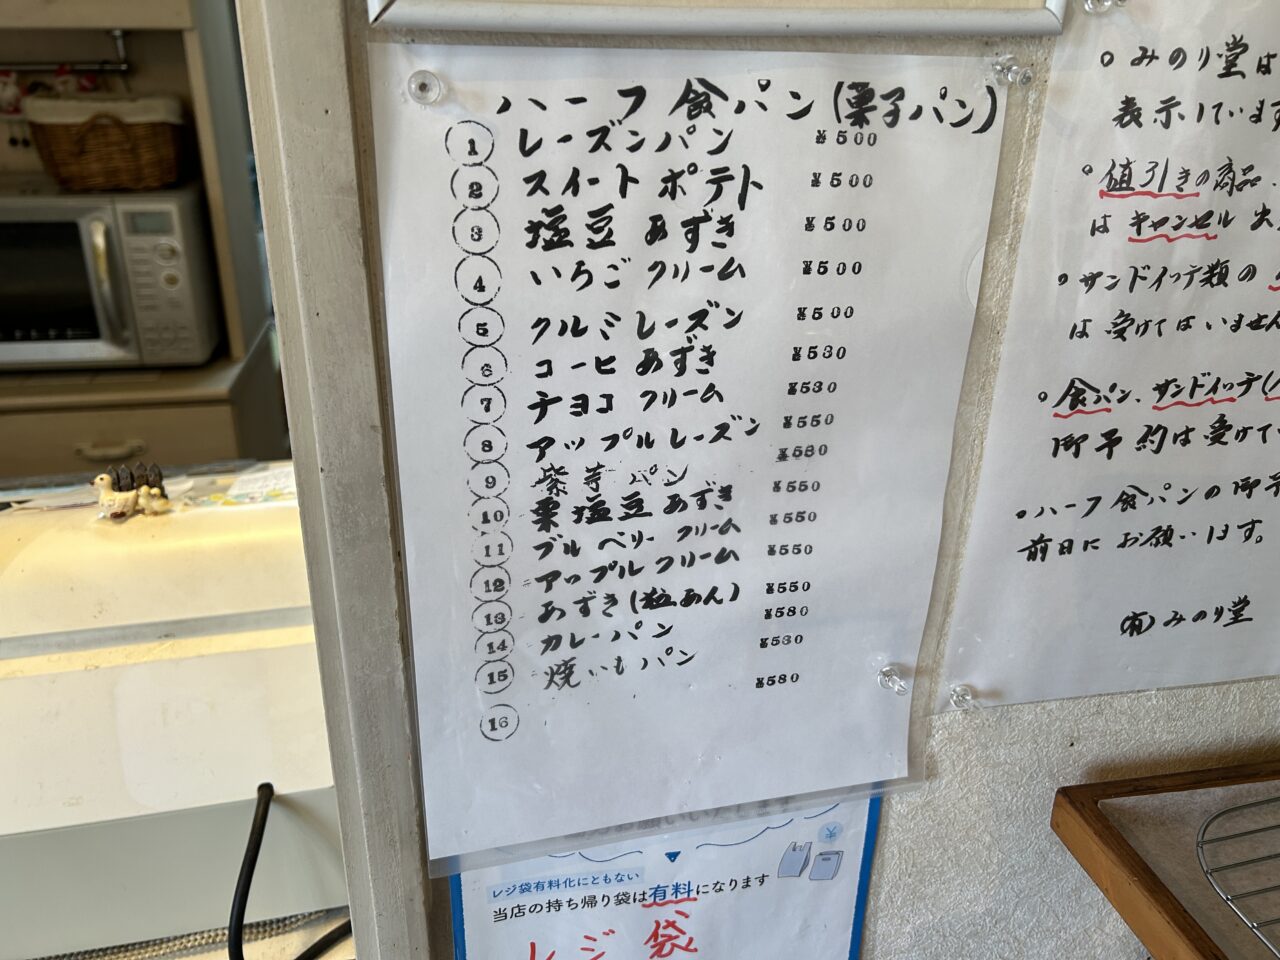 ハーフ食パン(菓子パン)
① レーズンパン ¥500
② スイートポテト ¥500
③ 塩豆あずき ¥500
④ いちごクリーム ¥500
⑤ クルミレーズン ¥500
⑥ コーヒあずき ¥530
⑦ チョコクリーム ¥530
⑧ アップルレーズン ¥550
⑨ 紫芋パン ¥530
⑩ 栗塩豆あずき ¥550
⑪ ブルベリークリーム ¥550
⑫ アップルクリーム ¥550
⑬ あずき(粒あん) ¥550
⑭ カレーパン ¥580
⑮ 焼いもパン ¥530
⑯ ¥580
。みのり堂は
表示しています
。値引きの商品
はキャンセル
。サンドイッチ類の
は受けてはいません
。食パン、サンドイッチ(
御予約は受けて
。ハーフ食パンの御予
前日にお願いします。
(有)みのり堂
レジ袋有料化にともない
当店の持ち帰り袋は有料になります
レジ袋